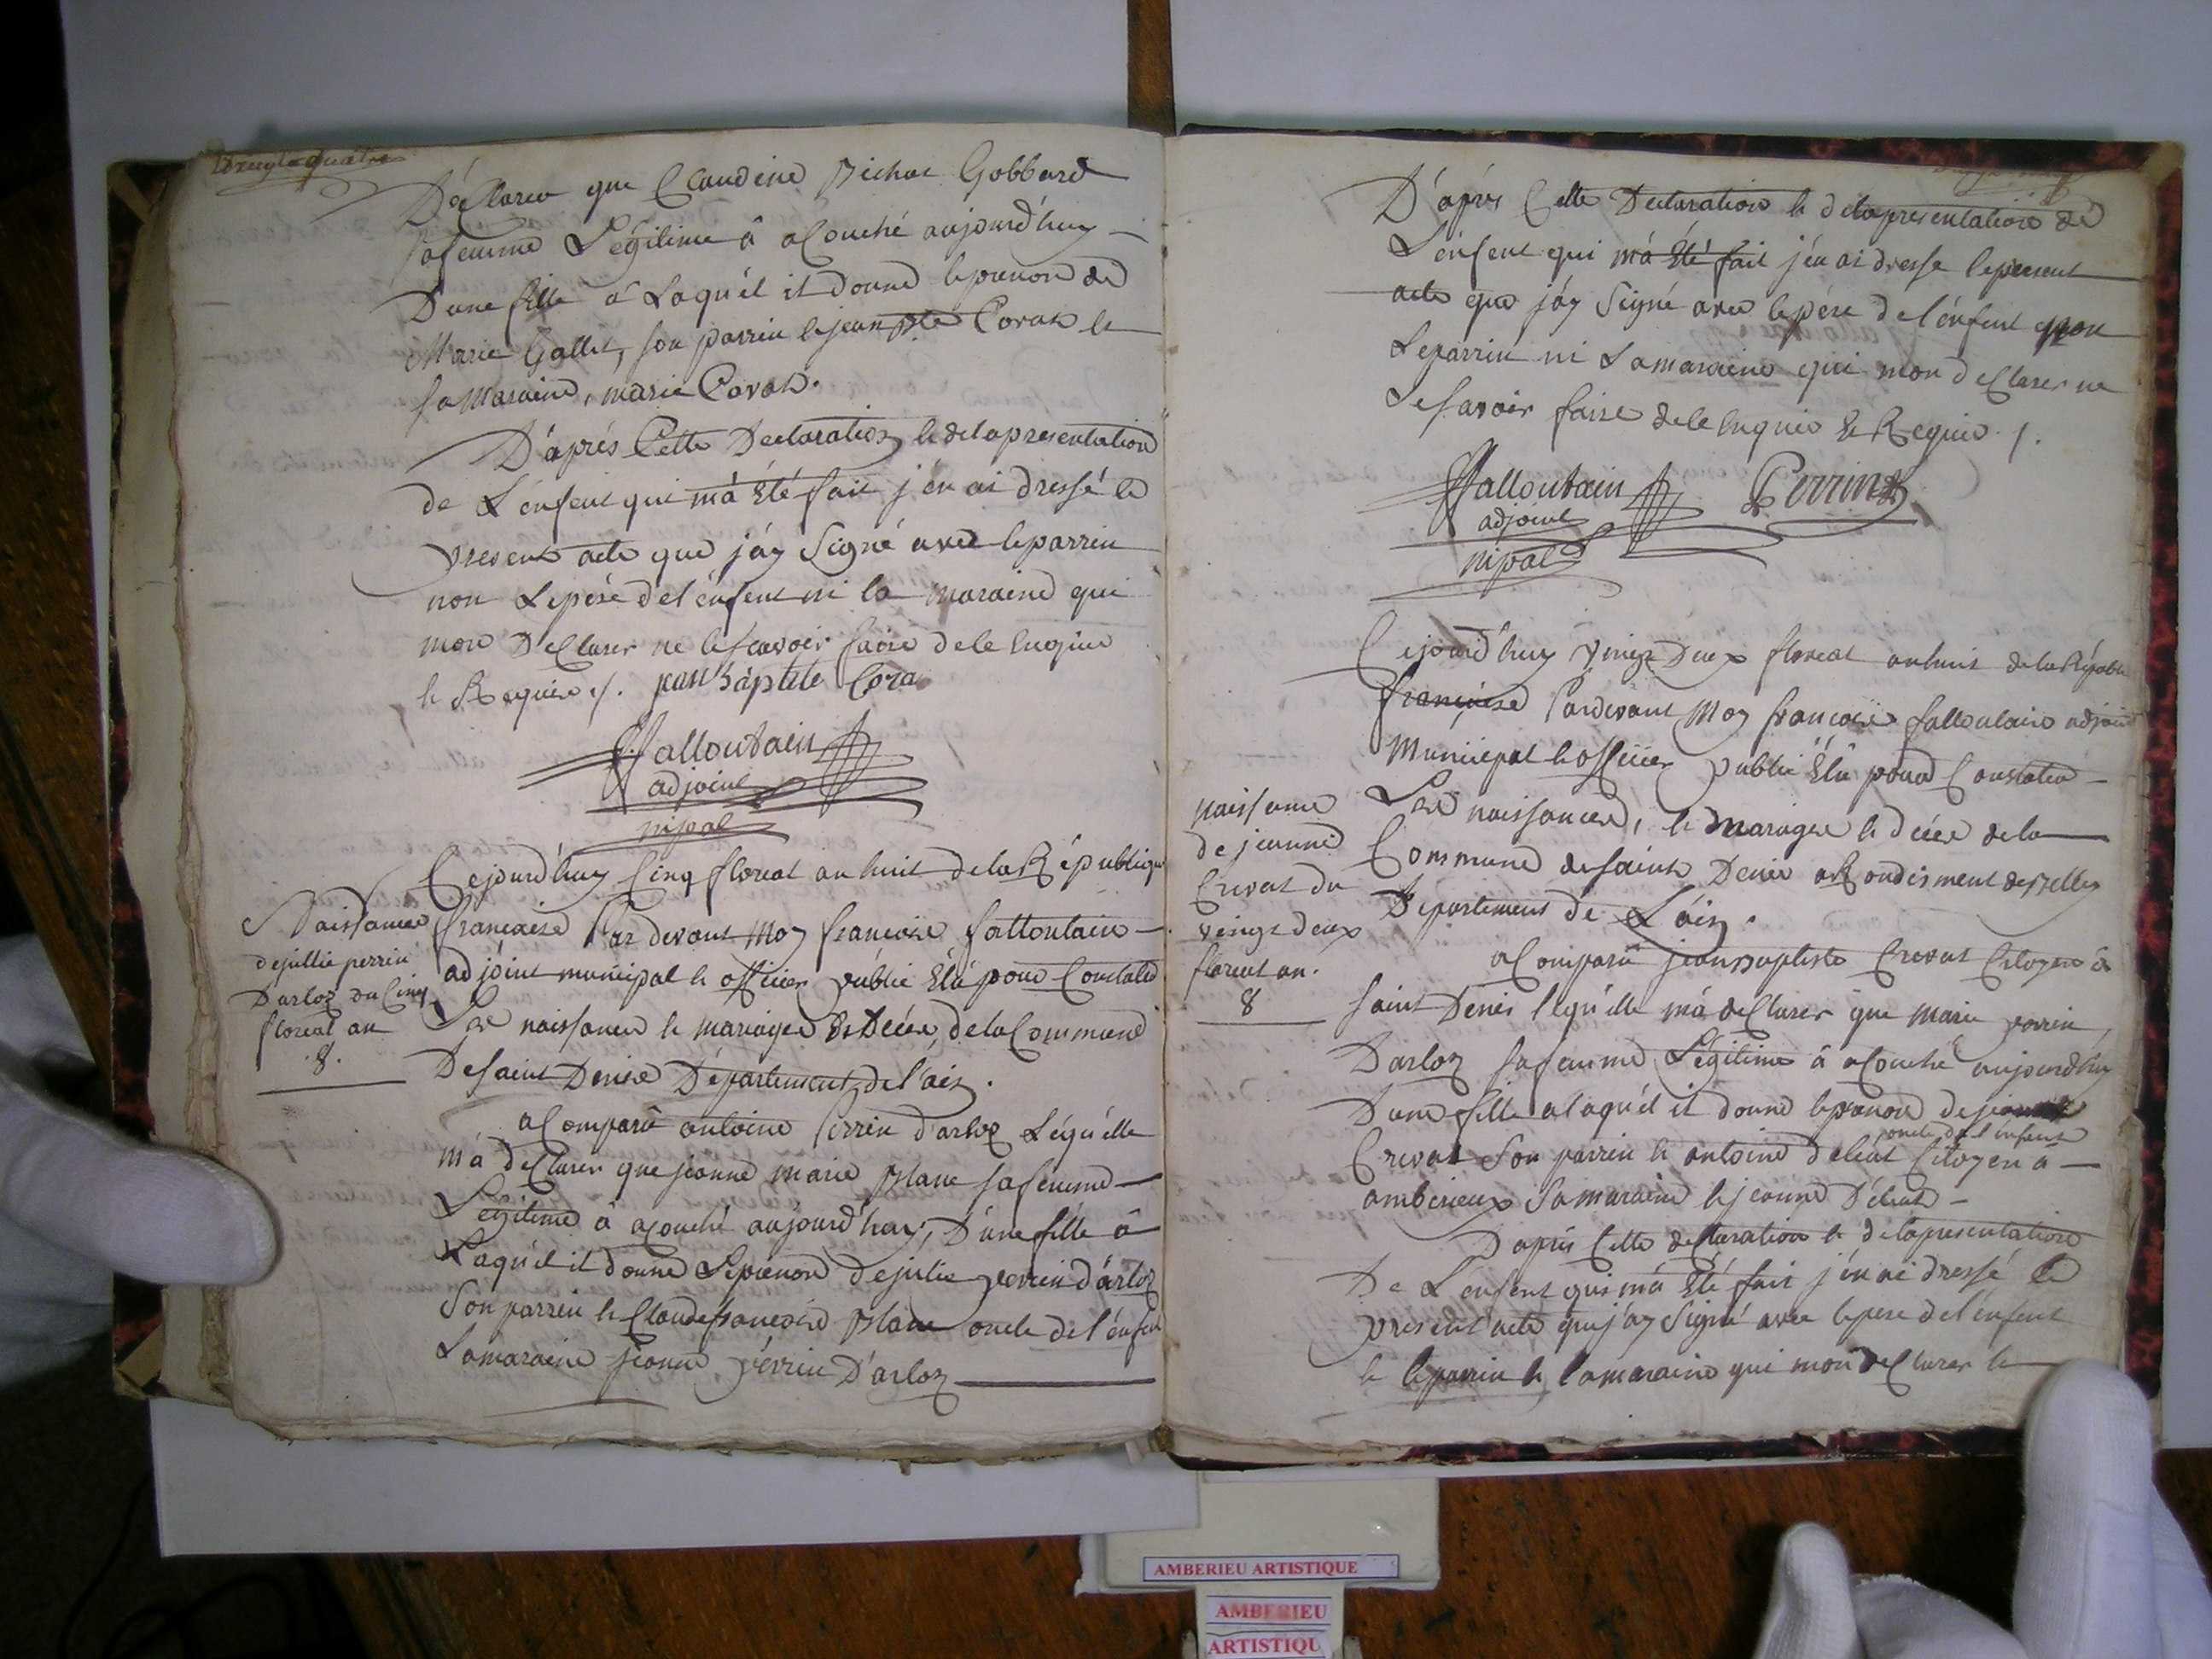 vingt quatre
Déclarer que Claudine Gobbard
sa femme Légitime â acouché aujourd'huy
D'une fille a Laquél il donne le prenom de
Marie Gallet, son parrin le jean Bte Coras le
sa maraine, marie Coras.
D'aprés Cette Declaration le de la presentation
de L'énfent qui má été fait j'én ai dressé le
present acte que j'áy Signé avec le parrin
non Le pére de l'énfent ni la maraine qui
mon Declarer ne le scavoir faire de le enquis
le Requis ./. jean baptiste Cora
falloutain
adjoint
nipal
Cejourd'huy Cinq floreal an huit de la République
francaise Par devant Moy francoise falloutain
adjoint municipal le officier public élû pour Constater
Les naissances le mariages Et Décés, de la Commune
De saint Denis Département de l'ain.
Naissance
de jullie perrin
D'arloz du Cinq
floreal an
.8.
a Comparû antoine Perrin d'arloz Léquélle
má declarer que jeanne marie Blanc sa femme
Légitime â acouché aujourd'huy, D'une fille â
Laquél il donne Le prenom de julie perrin d'arloz
Son parrin le Claude francoise Blanc oncle de l'énfent
La maraine jeanne pérrin D'arloz
D'aprés Cette Declaration le de la presentation de
L'énfent qui má été fait j'én ai dresse le present
acte que j'áy Signé avec le pére de l'énfent non
Le parrin ni La maraine qui mon declarer ne
Le savoir faire de le enquis le Requis ./.
falloutain Perrin
adjoint
nipal
Cejourd'huy vingt Deux floreal an huit de la Répube
française Pardevant Moy françoise falloutain adjoint
Municipal le officier public élû pour Constater
Les naissances, le mariages le décés de la
Commune de saint Denis arondisment de Belley
Département de L'áin.
naissance
de jeanne
Crevat du
vingt deux
floreal an.
8
a Comparû jean baptiste Crevat Citoyen â
saint Denis lequélle má declarer que marie perrin
Darloz sa femme Légitime â acouché aujourd'huy
D'une fille a laquél il donne le prenom de jeanne
oncle de l'énfent
Crevat Son parrin le antoine deleat Citoyen â
amberieux sa maraine le jeanne Déleat
D'aprés Cette declaration le de la presentation
De L'enfent qui má été fait j'én ai dressé le
present acte que j'áy Signé avec le pere de l'énfent
le le parrin le la maraine qui mon declarer le
AMBERIEU ARTISTIQUE
AMBERIEU
ARTISTIQU